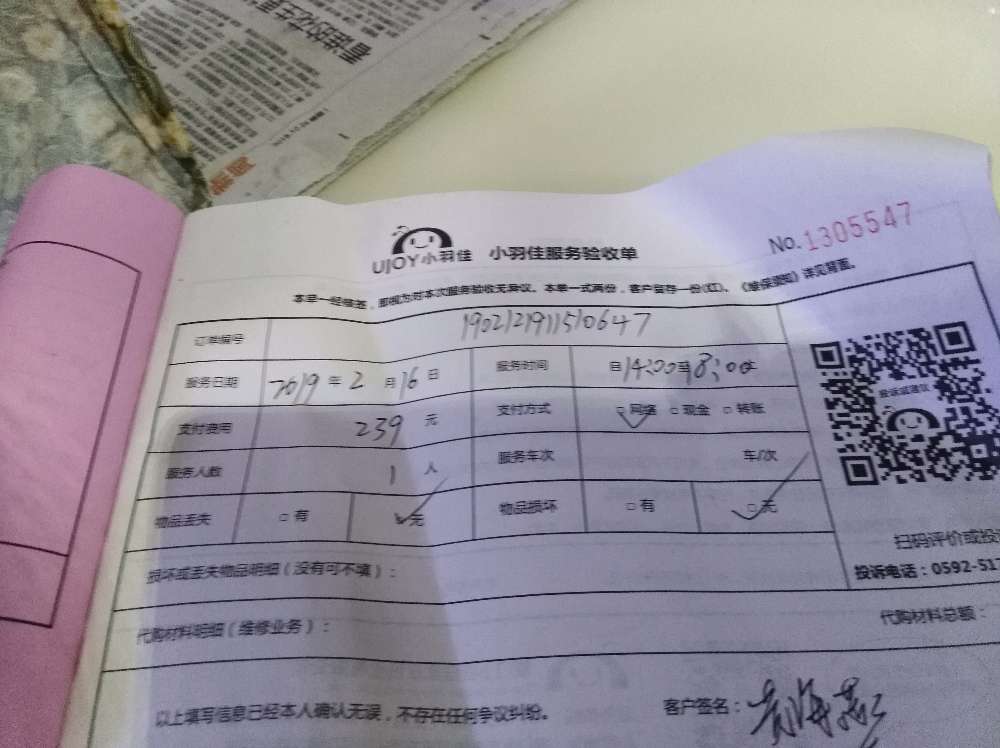 UJOY小羽佳 小羽佳服务验收单 No.1305547
本单一经签签，即视为对本次服务验收无异议。本单一式两份，客户留存一份(红)。《维保须知》详见背面。
订单编号 190212191510647
服务日期 2019年2月16日 服务时间 自14:00至18:00止
支付费用 239元 支付方式 网络 □现金 □转账
服务人数 1人 服务车次 车/次
物品丢失 □有 无 物品损坏 □有 □无
损坏或丢失物品明细（没有可不填）：
扫码评价或投
投诉电话：0592-517
代购材料明细（维修业务）：
代购材料总额：
以上填写信息已经本人确认无误，不存在任何争议纠纷。
客户签名：黄海燕